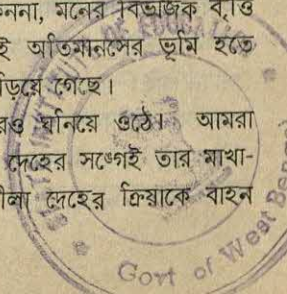 কেননা, মনের বিভাজক বৃত্তি
ই অতিমানসের ভূমি হতে
ড়িয়ে গেছে।
রও ঘনিয়ে ওঠে। আমরা
দেহের সঙ্গেই তার মাখা-
লীলা দেহের ক্রিয়াকে বাহন
Govt of West Bengal